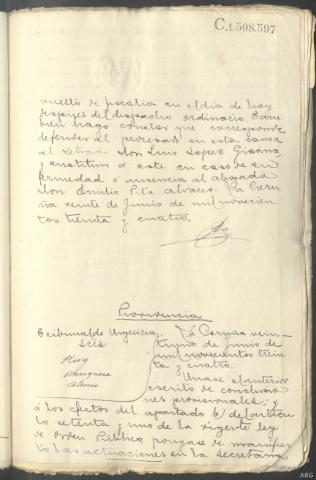 C.1.508.597
vuelto de fiscalía en el día de hoy
despues del despacho ordinario. Tam
bien hago constar que corresponde
defender al procesado en esta causa
al Letrado Don Luis Lopez
y sustituir a este en caso de en
fermedad o ausencia al abogado
Don Emilio Pita. La Coru
ña veinte de Junio de mil novecien
tos treinta y cuatro.
Providencia
Tribunal de Urgencia. La Coruña vein-
Sres tiuno de Junio de
mil novecientos trein
ta y cuatro.
Unase el anterior
escrito de conclusio
nes provisionales; y
a los efectos del apartado b) del artícu
lo setenta y uno de la vigente ley
de Orden Público, pongase de manifies
to las actuaciones en la Secretaría
ARG